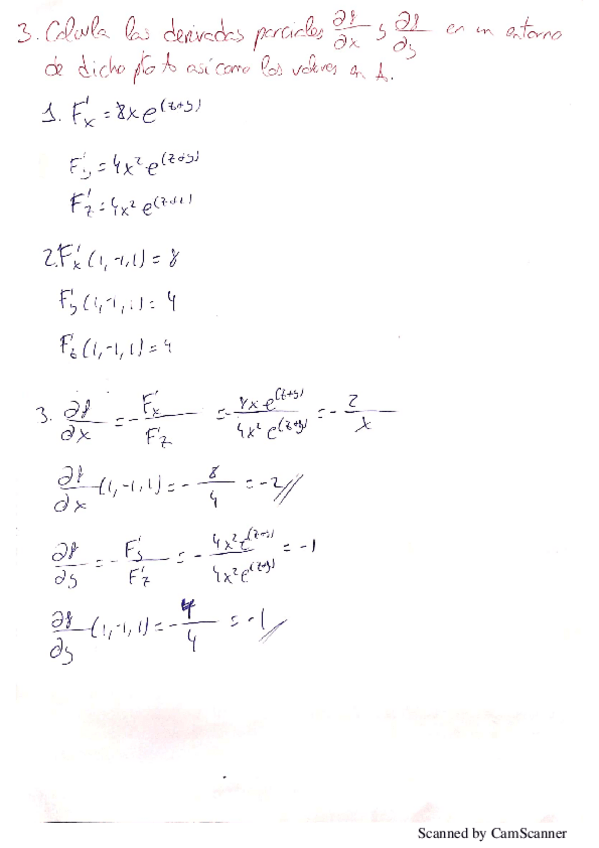 3. Calcula las derivadas parciales ∂f/∂x y ∂f/∂y en un entorno
de dicho pto A así como los valores en A.
1. F'x = 8xe^(z+y)
F'y = 4x² e^(z+y)
F'z = 4x² e^(z+y)
2. F'x (1,-1,1) = 8
F'y (1,-1,1) = 4
F'z (1,-1,1) = 4
3. ∂f/∂x = - F'x/F'z = - 8x e^(z+y)/4x² e^(z+y) = - 2/x
∂f/∂x (1,-1,1) = - 8/4 = -2//
∂f/∂y = - F'y/F'z = - 4x² e^(z+y)/4x² e^(z+y) = -1
∂f/∂y (1,-1,1) = - 4/4 = -1//
Scanned by CamScanner